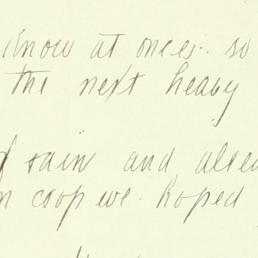 know at once. so
the next heavy
of rain and
crop we hoped